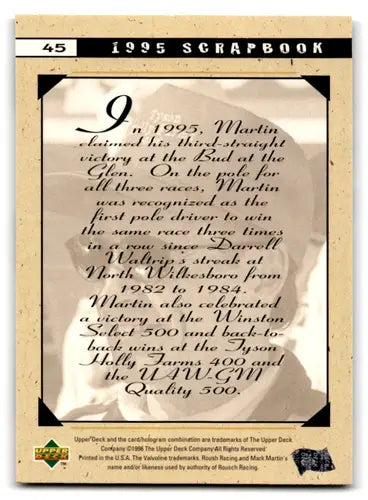 45
1995 SCRAPBOOK
In 1995, Martin
claimed his third-straight
victory at the Bud at the
Glen. On the pole for
all three races, Martin
was recognized as the
first pole driver to win
the same race three times
in a row since Darrell
Waltrip's streak at
North Wilkesboro from
1982 to 1984.
Martin also celebrated
a victory at the Winston
Select 500 and back-to-
back wins at the Tyson
Holly Farms 400 and
the UAW-GM
Quality 500.
UPPER
DECK
TM
Upper Deck and the card/hologram combination are trademarks of The Upper Deck
Company ©1996 The Upper Deck Company All Rights Reserved
Printed in the U.S.A. The Valvoline trademarks, Roush Racing and Mark Martin's
name and/or likeness used by authority of Rousch Racing.